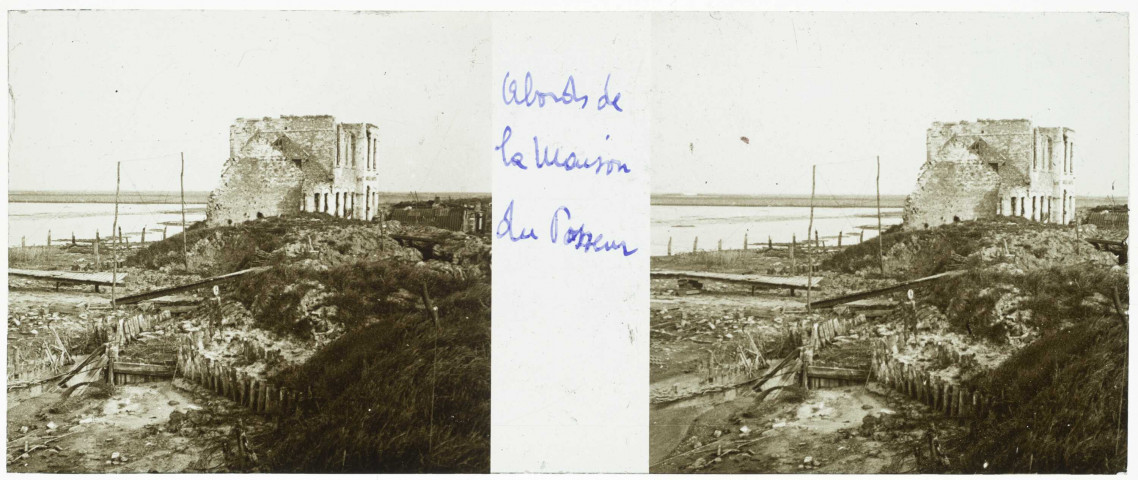 Abords de
la Maison
du Passeur